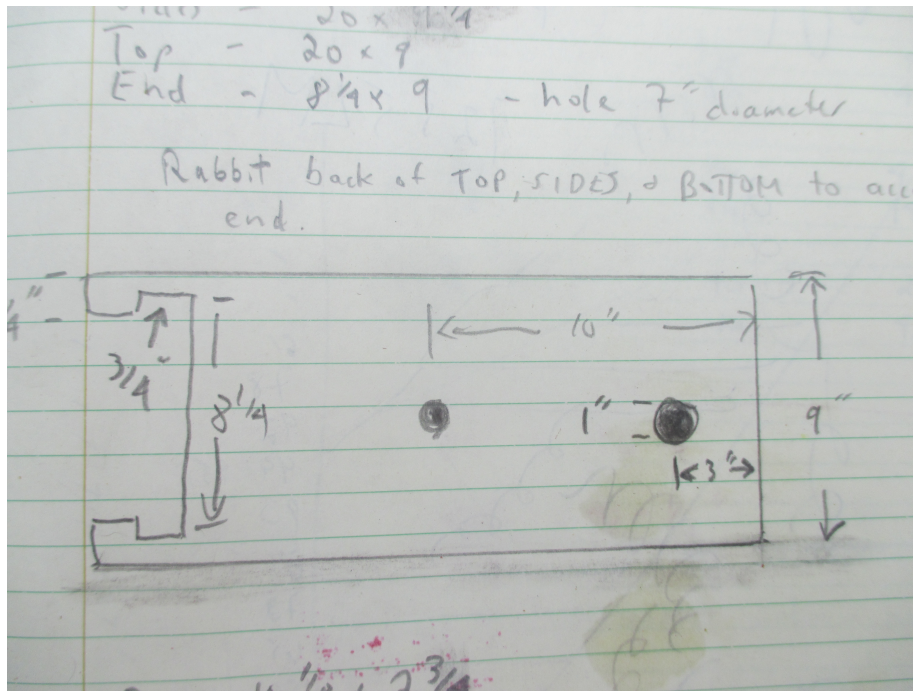 20 x
Top - 20 x 9
End - 8 1/4 x 9 - hole 7" diameter
Rabbit back of TOP, SIDES, & BOTTOM to acc
end.
3/4"
8 1/4
10"
1"
3"
9"